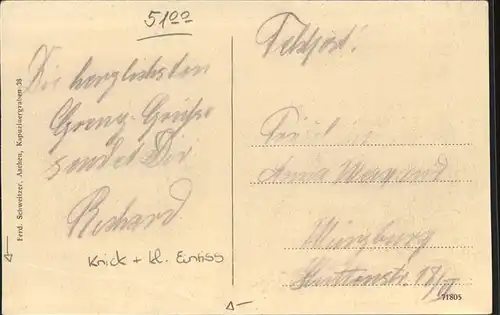 51 00
Die herzlichsten
Grenz-Grüsse
sendet Dir
Richard
Knick + kl. Einriss
Feldpost!
Fräulein
Anna
Würzburg
Huttenstr. 18/II
Ferd. Schweitzer, Aachen, Kapuzinergraben 38
71805